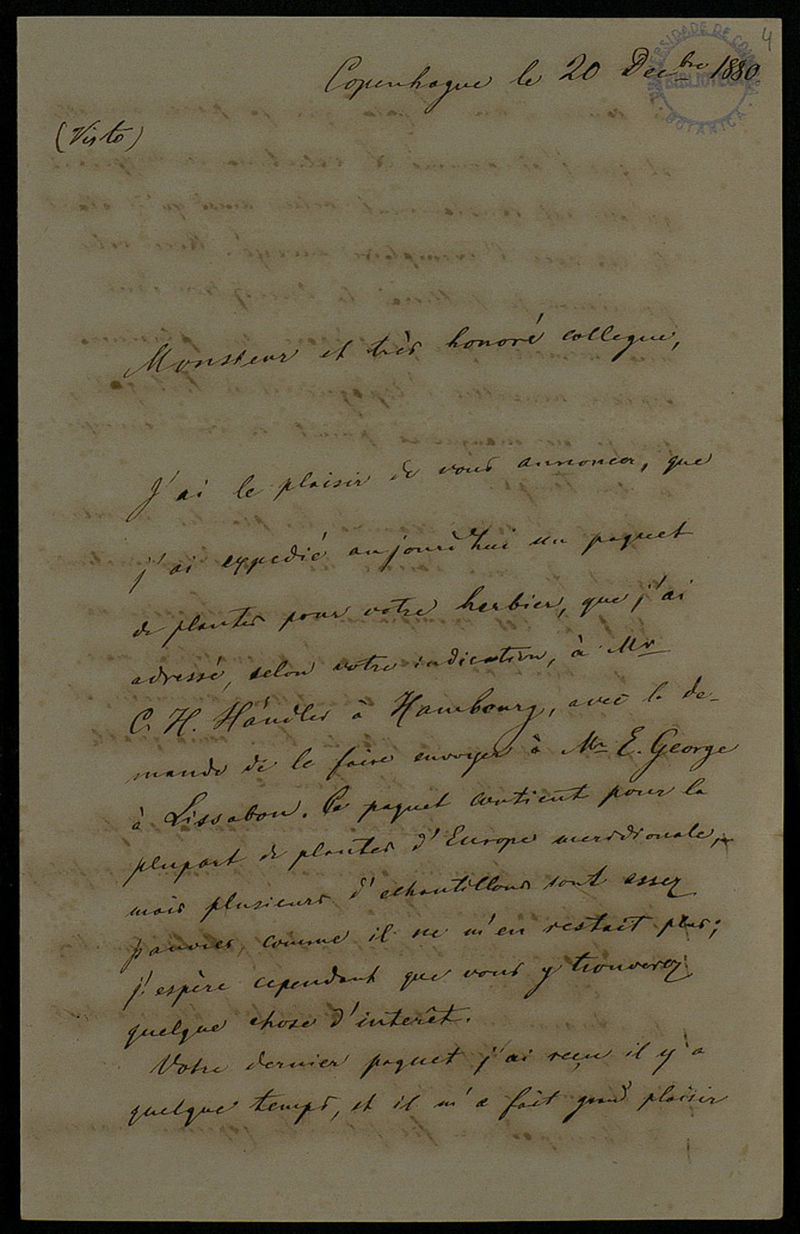 4
UNIVERSIDADE DE COIMBRA
BIBLIOTECA
BOTANICA
Copenhague le 20 Decbre 1880
(Visto)
Monsieur et très honoré collegue,
J'ai le plaisir de vous annoncer, que
j'ai expedié aujourd'hui un paquet
de plantes pour votre herbier, que j'ai
adressé, selon votre indication, à Mr
C. H. Händler à Hambourg, avec la de-
mande de le faire envoyer à Mr E. George
à Lissabon. Ce paquet contient pour la
plupart de plantes d'Europe meridionale,
mais plusieurs d'echantillons sont assez
pauvres, comme il ne m'en restait plus;
j'espère cependant que vous y trouverez
quelque chose d'interêt.
Votre dernier paquet j'ai reçu il y a
quelque temps, et il m'a fait grand plaisir